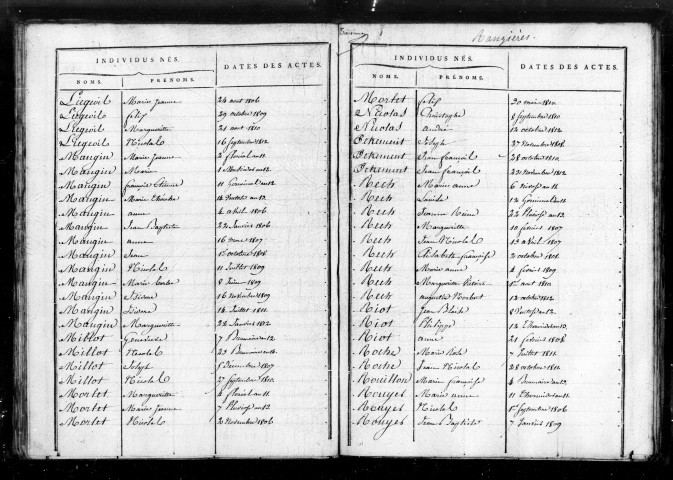 INDIVIDUS NÉS. DATES DES ACTES.
NOMS. PRÉNOMS.
Liegeois Marie Jeanne 24 aout 1806
Liegeois 29 octobre 1809
Liegeois Margueritte 21 aout 1810
Liegeois Nicolas 16 Septembre 1812
Mangin Marie Jeanne 2 floréal an 11
Mangin Marie
Mangin françois Etienne 11 Germinal an 12
Mangin Marie Thérèse
Mangin anne 4 avril 1806
Mangin Jean Baptiste 22 Janvier 1806
Mangin anne 16 mars 1807
Mangin Jean octobre 1808
Mangin Nicolas 11 Juillet 1809
Mangin Marie 8 Juin 1809
Mangin Isidore 16 Novembre 1809
Mangin Isidore 14 Juillet 1811
Mangin Marguerite 28 Janvier 1812
Millot Geneviève 7 Brumaire an 12
Millot Nicolas 29 Brumaire an 14
Millot Joseph 5 Décembre 1807
Millot Nicolas 27 Septembre 1811
Mortet Marguerite 4 floréal an 11
Mortet Marie Jeanne 7 Pluviose an 12
Mortet Nicolas 2 Novembre 1806
Rangières.
INDIVIDUS NÉS. DATES DES ACTES.
NOMS. PRÉNOMS.
Mortet 30 mai 1810
Nicolas Christophe 8 Septembre 1810
Nicolas andré 14 octobre 1812
Pekement Joseph 27 Novembre 1808
Pekement Jean françois 28 octobre 1810
Pekement Jean françois 22 Novembre 1812
Rech Marie anne 6 an 11
Rech 12 Germinal an 12
Rech Jeanne Reine 22 Pluviose an 12
Rech Marguerite 10 février 1807
Rech Jean Nicolas 13 avril 1807
Rech Elisabeth françoise 2 octobre 1808
Rech Marie anne 4 février 1809
Rech Margueritte 1er aout 1810
Rech augustin Norbert 12 octobre 1812
Riot Jean Blaise
Riot Philippe 12 Thermidor an 10
Riot anne 21 février 1808
Roche Marie Rose 7 Juillet 1811
Roche Jean Nicolas 28 octobre 1811
Rouillon Marie françoise 4 Brumaire an 13
Rouyer Marie anne 11 Thermidor an 11
Rouyer Nicolas 1er Septembre 1806
Rouyer Jean Baptiste 7 Janvier 1809